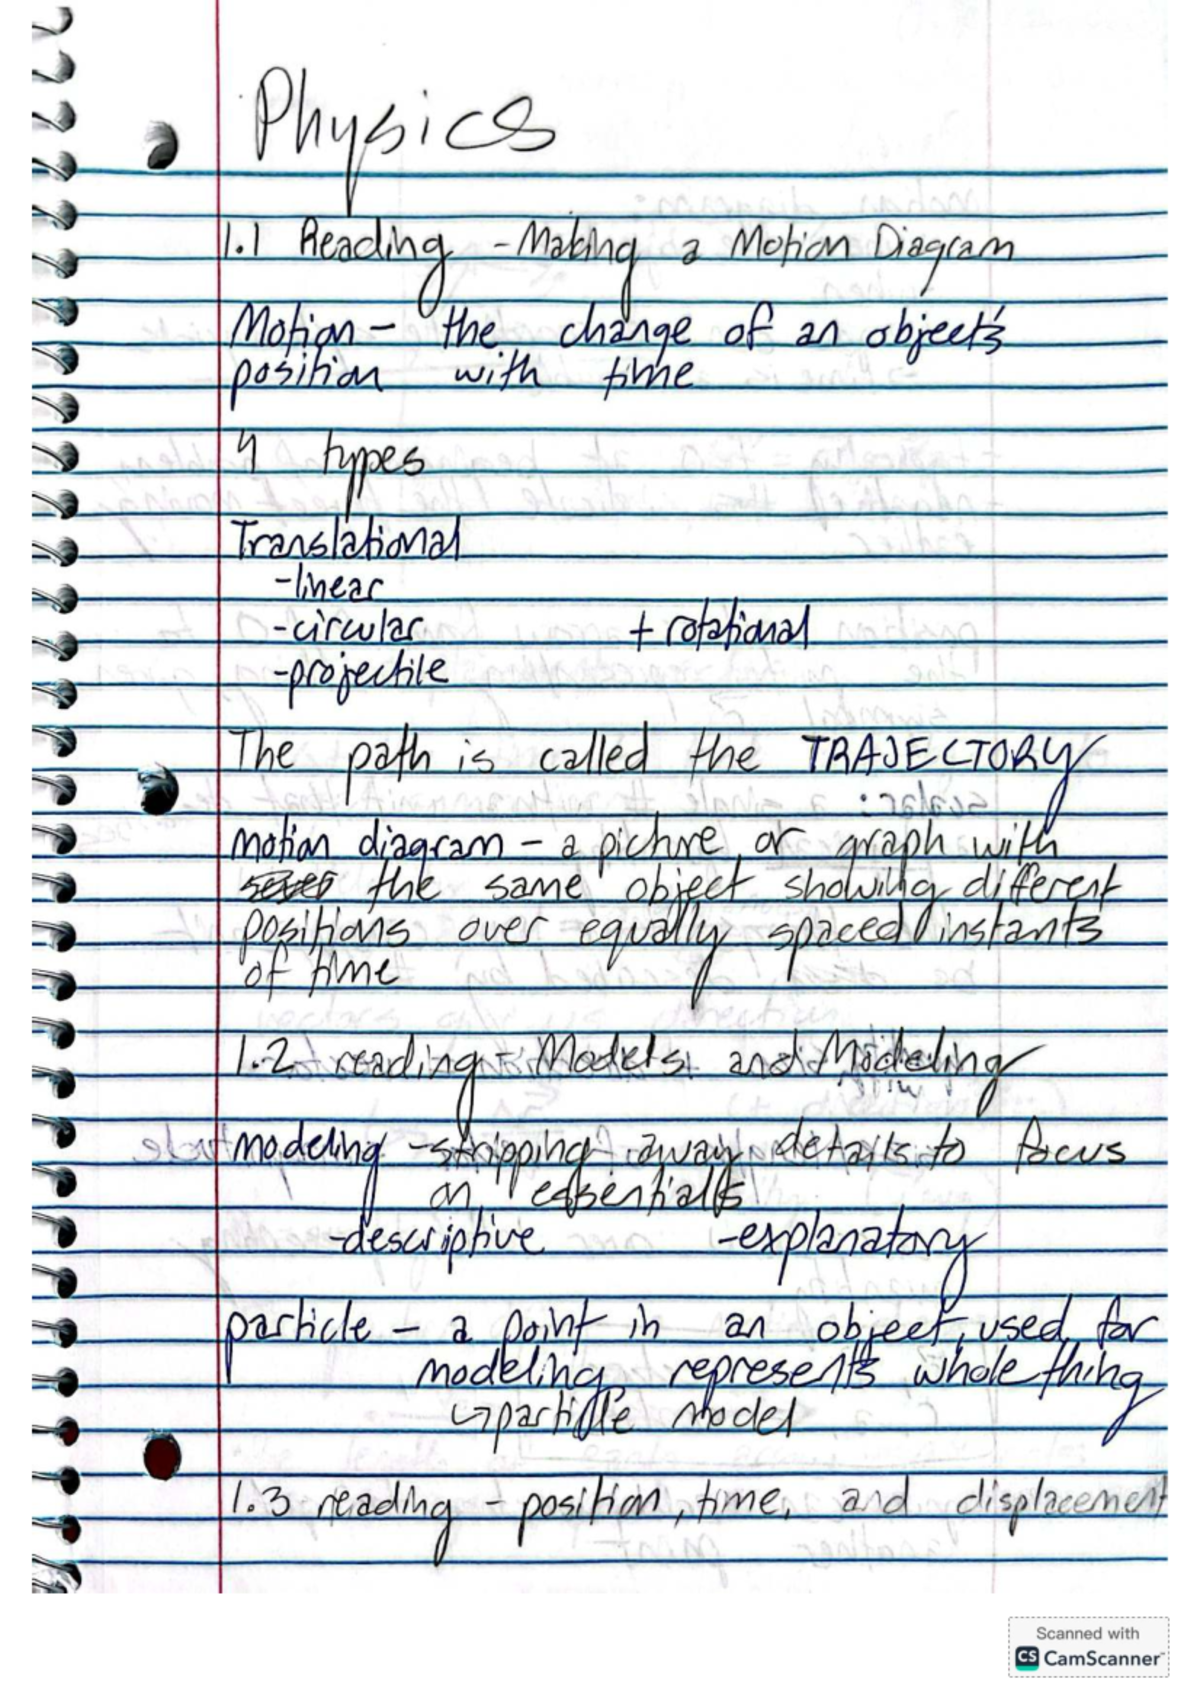 Physics
1.1 Reading - Making a Motion Diagram
Motion - the change of an object's
position with time
4 types
Translational
-linear
-circular + rotational
-projectile
The path is called the TRAJECTORY
motion diagram - a picture or graph with
the same object showing different
positions over equally spaced instants
of time
1.2 reading - Models and Modeling
modeling - stripping away details to focus
on essentials
-descriptive -explanatory
particle - a point in an object, used for
modeling, represents whole thing
↳particle model
1.3 reading - position, time, and displacement
Scanned with
CS CamScanner